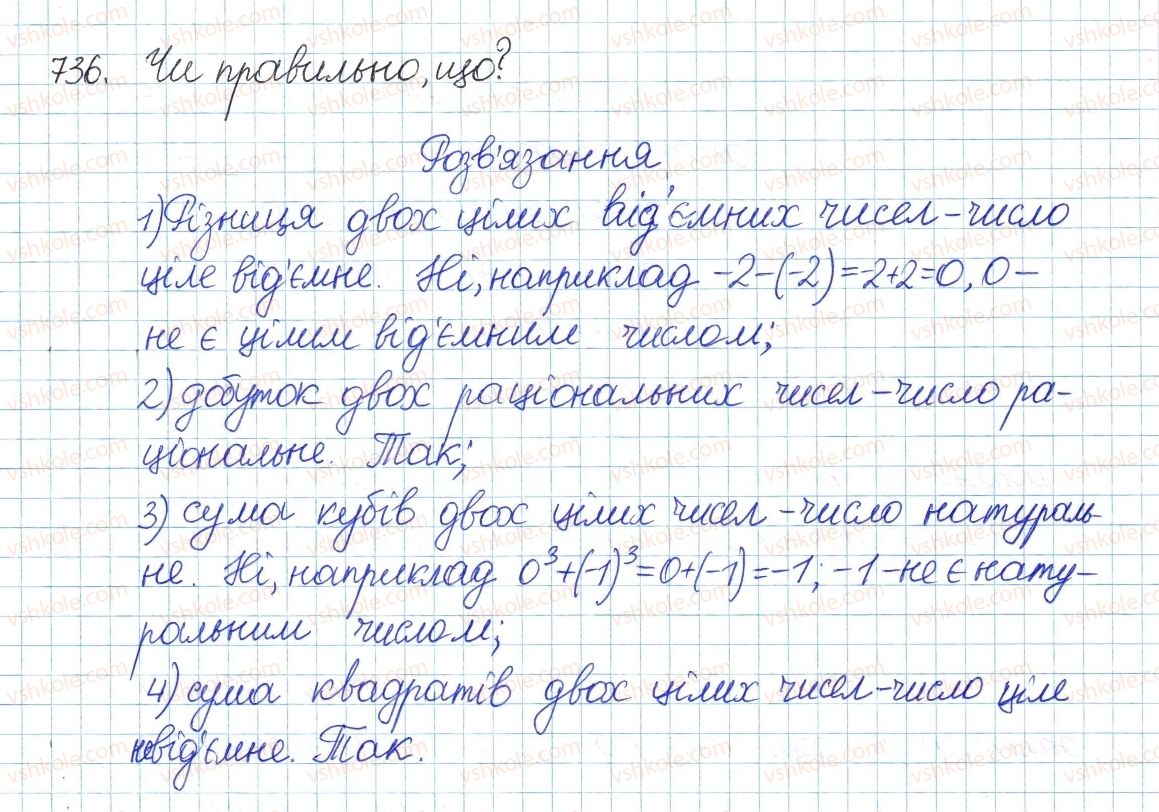 736. Чи правильно, що?
Розв'язання
1) Різниця двох цілих від'ємних чисел - число
ціле від'ємне. Ні, наприклад -2-(-2)=-2+2=0, 0 -
не є цілим від'ємним числом;
2) добуток двох раціональних чисел - число ра-
ціональне. Так;
3) сума кубів двох цілих чисел - число натураль-
не. Ні, наприклад 0³+(-1)³=0+(-1)=-1; -1 - не є нату-
ральним числом;
4) сума квадратів двох цілих чисел - число ціле
невід'ємне. Так.